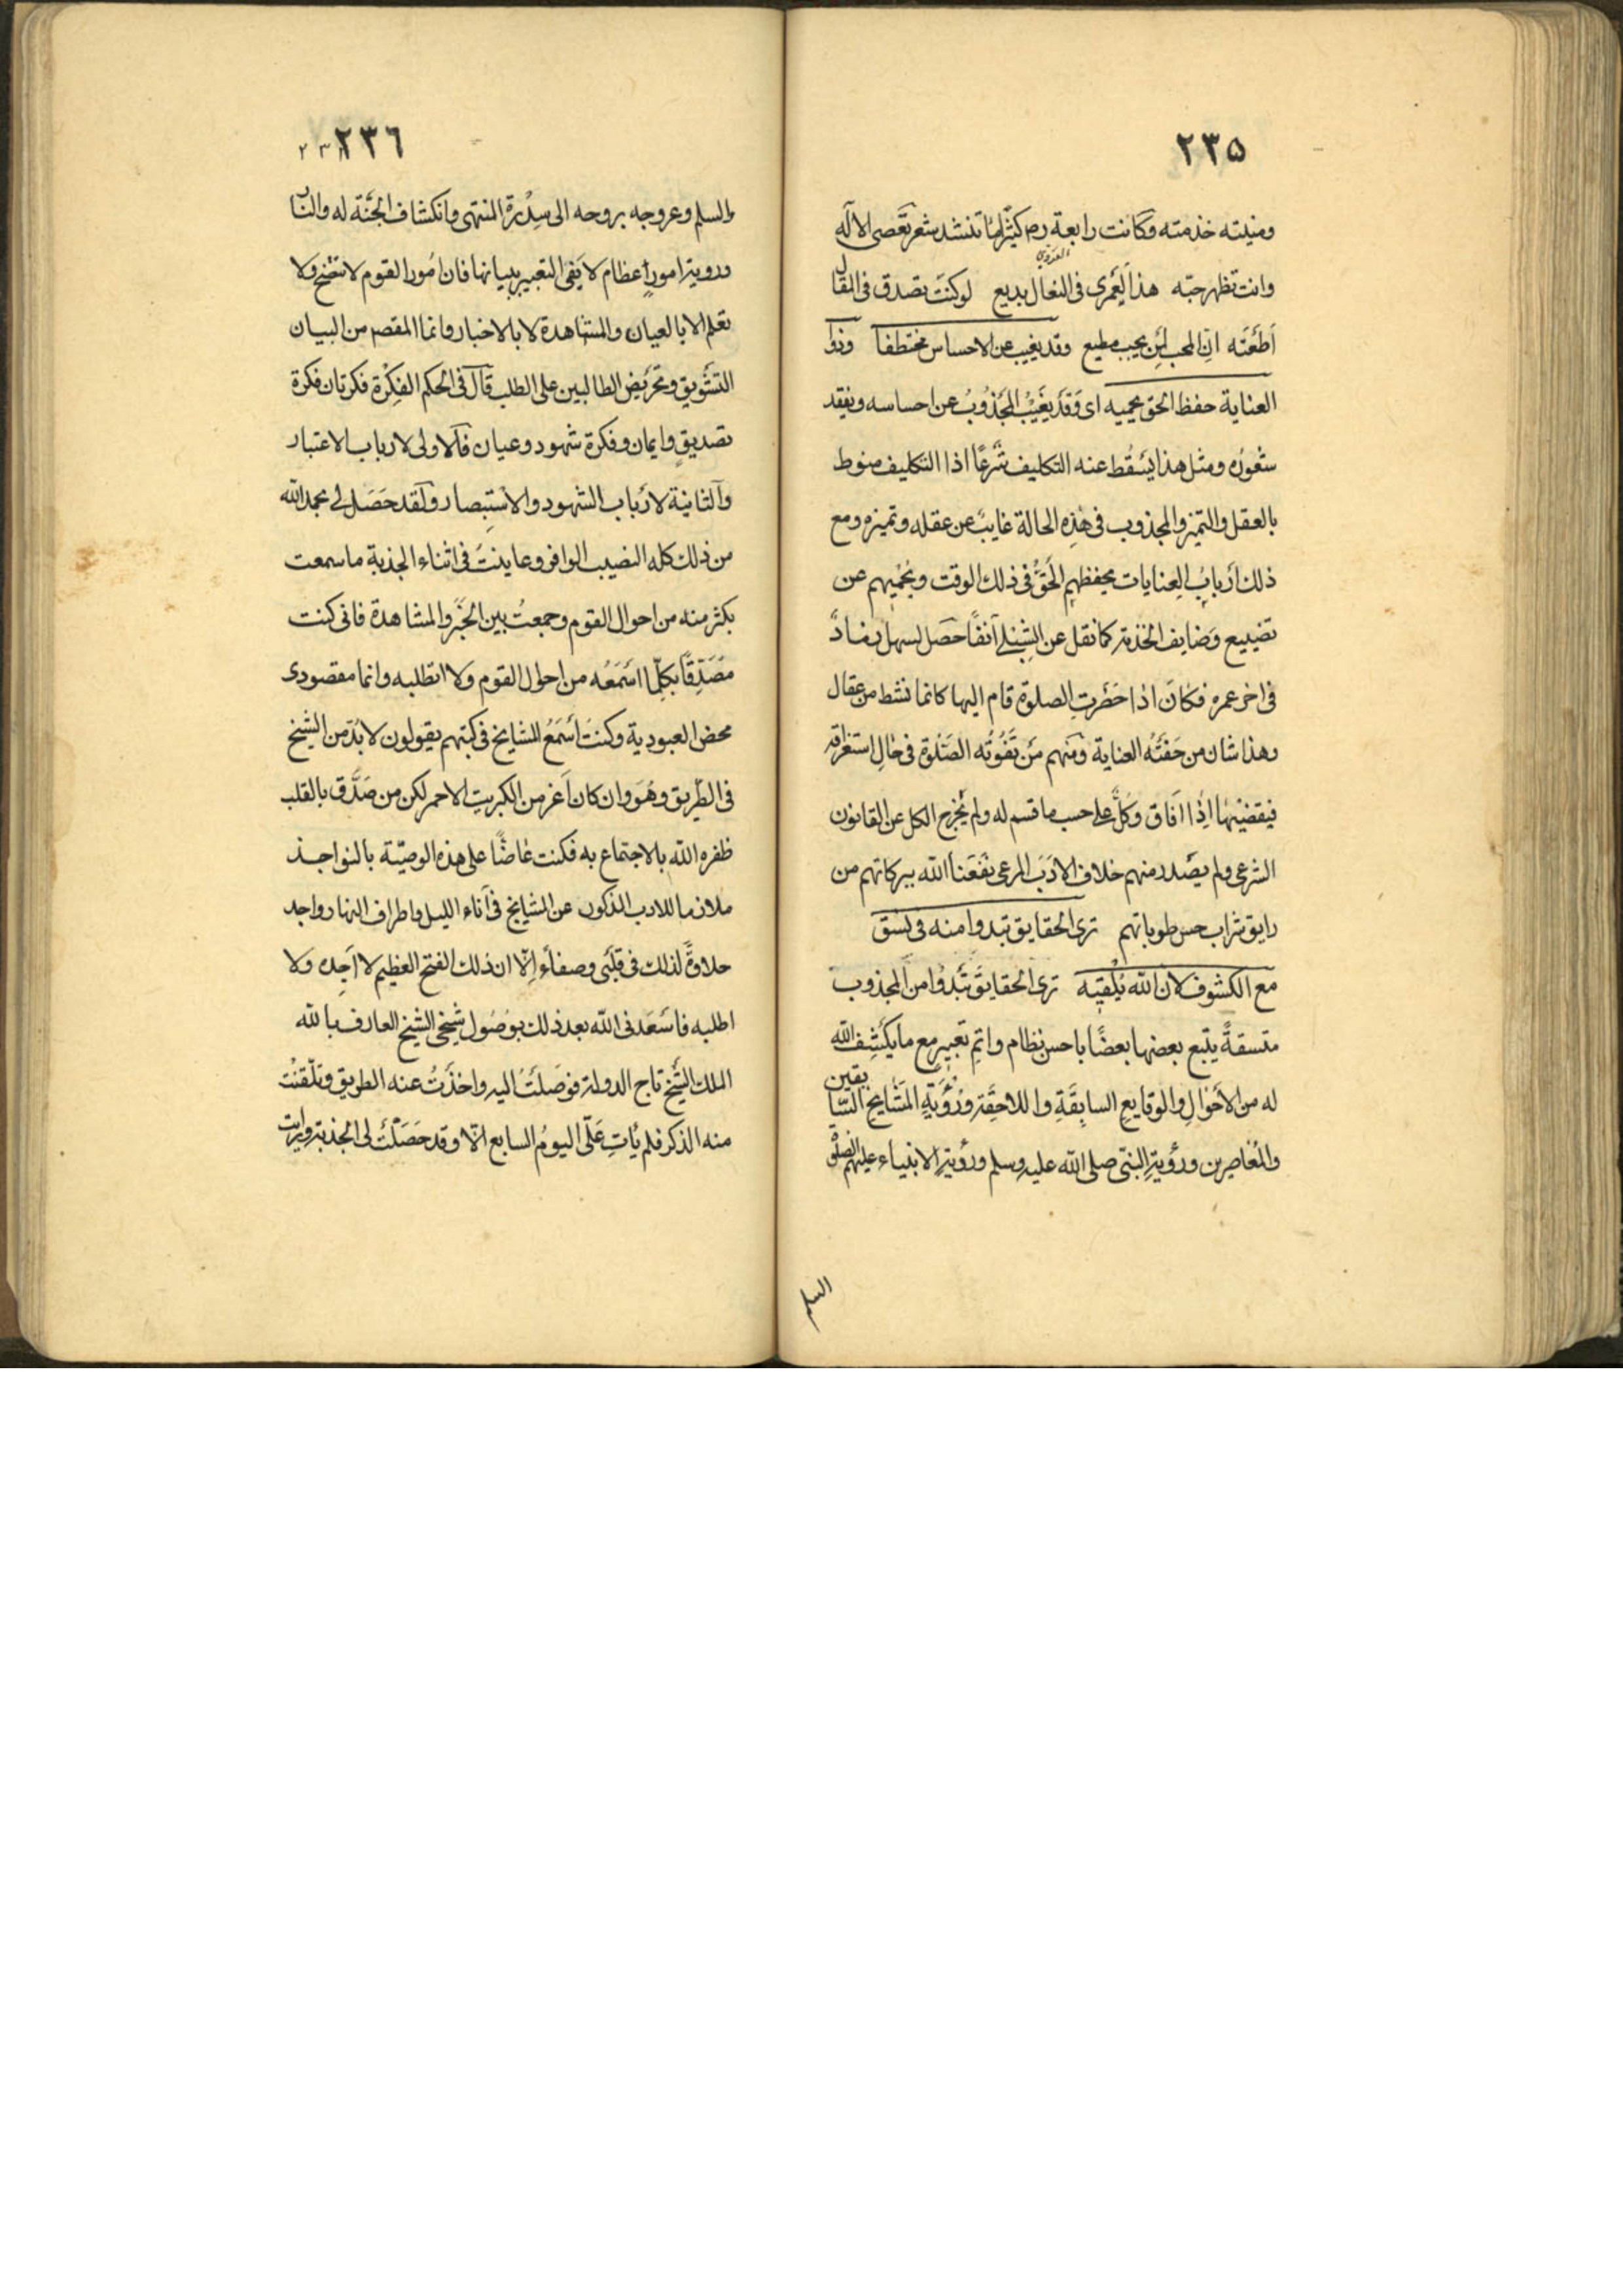 ٢٣٥
ومنيته خدمته وكانت رابعة رم كثيرًا ما تنشد شعر تعصى الاله
العدوي
وانت تظهر حبّه هذا لَعَمْرى فى الفعال بديع لو كنتَ تصدق فى المقال
اَطَعْتَه انّ المحب لمن يحب مطيع وقد يغيب عن الاحساس مختطفا وذو
العناية حفظ الحق يحميه اى وَقَد يَغَيْبُ المجَذوُبُ عن احساسه ويفقد
شعوُره ومثل هذا يَسْقُط عنه التكليف شَرعًا اذا التكليف منوط
بالعقل والتميز والمجذوب فى هٰذِه الحالة غايبٌ عن عقله وتميزه ومع
ذلك اَربابُ العِنايات يحفظهم الحَقُّ فى ذلك الوقت ويَحْميهم عن
تضييع وَضايف الخدمة كما نقل عن الشِبْلى آنفًا حصَل لسهل
فى اخر عمره فكانَ اذا حَضَرتِ الصلوة قام اليها كانما نشط من عقال
وهذا شان من حَفَتْهُ العناية ومنهم مَن تَفُوتُه الصَلوة فى حٰالِ استغراقه
فيقضيْهٰا اِذٰا اَفَاق وكُلٌّ على حسب ما قسم له ولم يَخْرج الكل عن القانون
الشرعى ولم يصَدر منهم خلاف الاَدَب المرعى نَفَعَنا اللّه ببركاتهم من
رايق شراب حس طوياتهم ترى الحقايق تبدوا منه فى نسق
مع الكشوف لان اللّه يُلْقيه ترى الحقايقَ تَبْدوُا من المجذوب
متسقةً يتبع بعضها بعضًا باحسن نظام واتم تعبير مع ما يكَشِف اللّه
له من الاَحْوٰالِ والوقايعِ السابِقَةِ واللاحِقَةِ ورُؤيَةِ المَشٰايخِ السّا
بقين
والمُعٰاصِرين ورؤيةِ النبىّ صلى اللّه عليه وسلم ورؤيةِ الانبياء عليهم الصلوة
السلم
٢٣٦
والسلم وعروجه بروحه الى سِدْرَة المنتهى وانكشاف الجنّة له والنار
ورويته امورًا عظام لا يَفى التعبير ببيانها فان اُمُورا القوم لا تتضح ولا
تعلم الا بالعيان والمشاهدة لا بالاخبار وانما المقصد من البيان
التشويق وتَحريض الطالبين على الطلب قالَ فى الحكم الفِكْرة فكرتان فكرة
تصديقٍ وايمان وفكرة شهود وعيان فالاولى لارباب الاعتبار
والثانية لارباب الشهود والاستِبصار ولَقد حَصَل لى بحمد اللّه
من ذلك كله النصيب الوافر وعاينتُ فى اثناء الجذبة ما سمعت
بكثر منه من احوال القوم وجمعتُ بين الخبَر والمشاهدة فانى كنت
مُصَدِقًا بكلّما اسْمَعُه من احوال القوم ولا اتطلبه وانما مقصودى
محض العبودية وكنتُ اَسْمَعُ المشايخ فى كتبهم يقولون لا بُدّ من الشيخ
فى الطَريق وهُوَ وان كان اَعز من الكبريت الاحمر لكن من صَدَّق بالقلب
ظفره اللّه بالاجتماع به فكنت عٰاضًّا على هذه الوصيّة بالنواجذ
ملازما للادب المذكور عن المشايخ فى آناء الليل واطراف النهار واجد
حلاوةً لذلك فى قلبى وصفاءً اِلّا ان ذلك الفتح العظيم لا اَجِده ولا
اطلبه فاسْعَدنى اللّه بعد ذلك بوُصُول شيخى الشيخ العارف باللّه
الملك الشَيخ تاج الدولة فوصَلْتُ اليه واخذَتُ عنه الطريق وتلَقنْت
منه الذكر فلم يَاتِ عَلَى اليومُ السابع اِلّا وقد حَصَلْت لى الجذبة ورايت